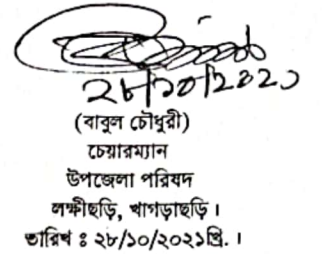 ২৮/১০/২০২১
(বাবুল চৌধুরী)
চেয়ারম্যান
উপজেলা পরিষদ
লক্ষীছড়ি, খাগড়াছড়ি।
তারিখ ঃ ২৮/১০/২০২১খ্রি. ।